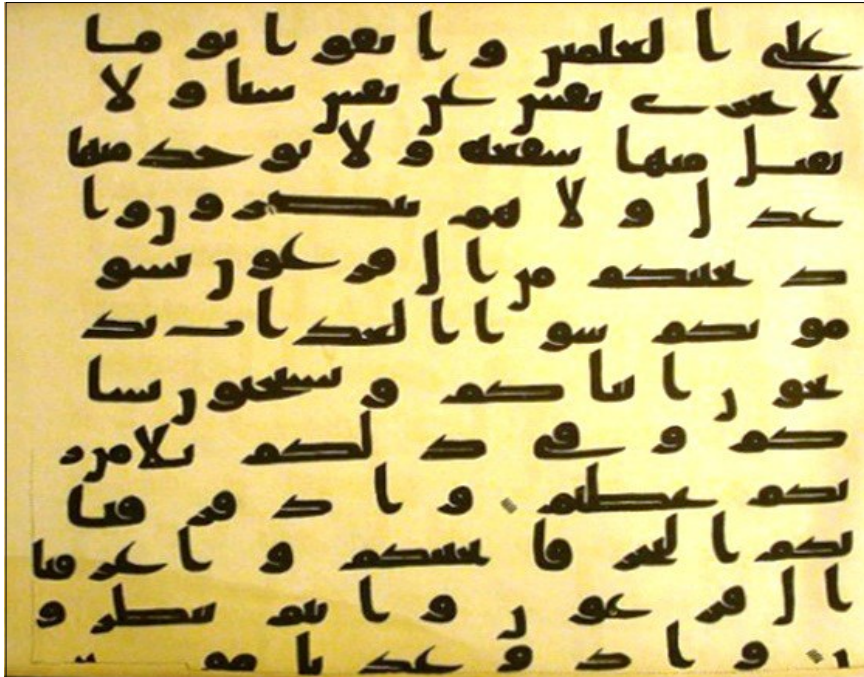 على العلمين واتقوا يوما
لا تجزى نفس عن نفس شيا ولا
يقبل منها شفعة ولا يوخذ منها
عدل ولا هم ينصرون وا
ذ نجينكم من ال فرعون يسو
مونكم سوا العذاب يذ
بحون ابناكم ويستحيون نسا
كم وفي ذلكم بلا من ر
بكم عظيم واذ فرقنا
بكم البحر فانجينكم واغرقنا
ال فرعون وانتم تنظرو
ن واذ وعدنا مو